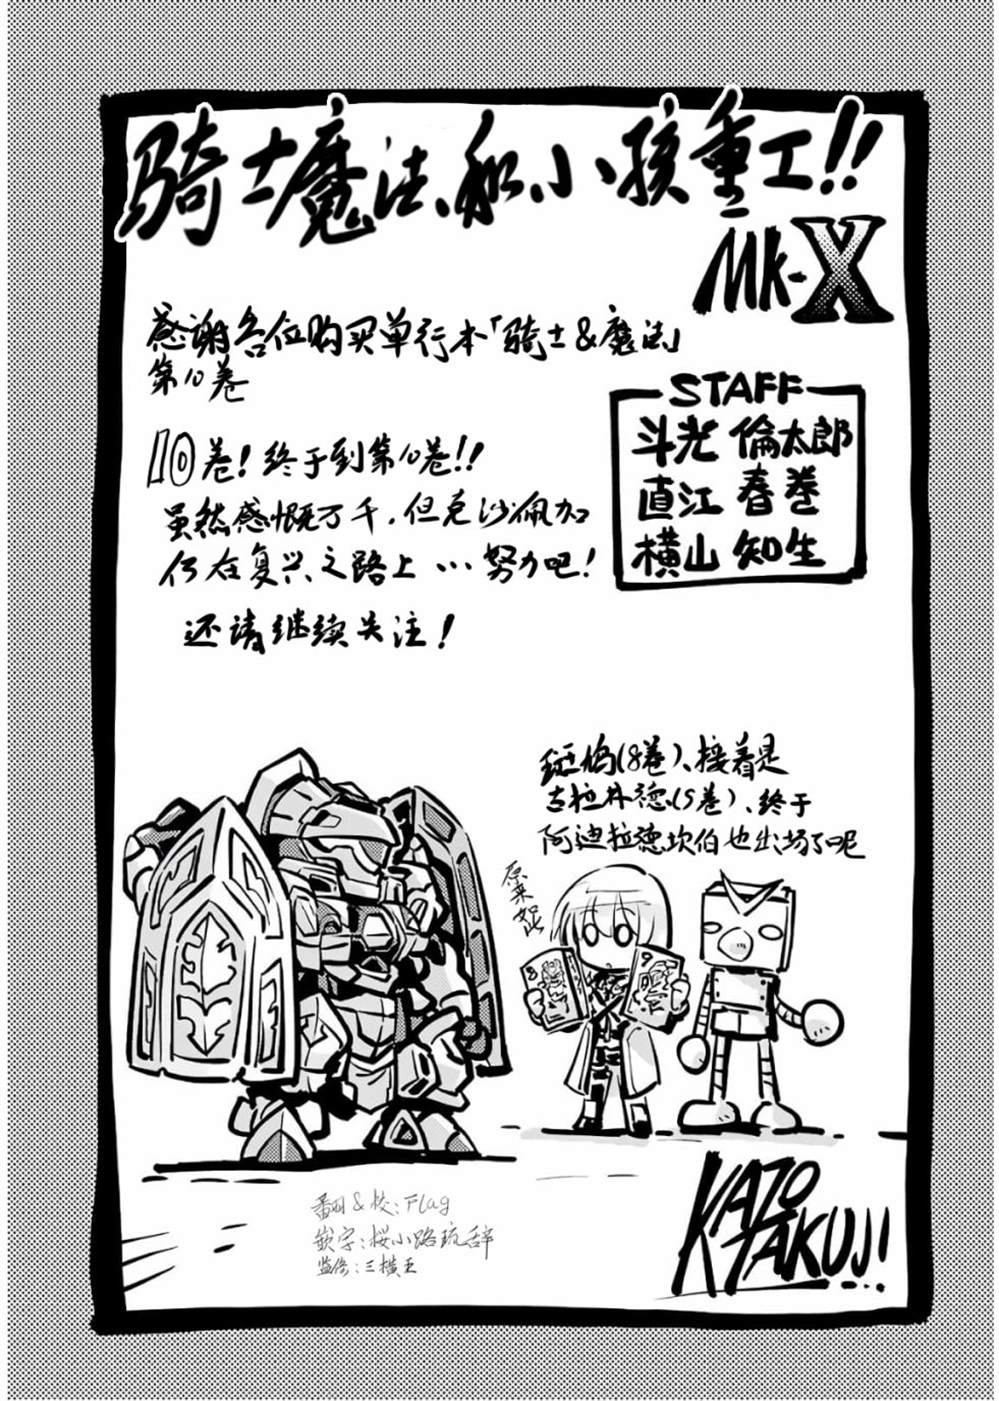 骑士魔法、和、小孩重工!!
Mk-X
感谢各位购买单行本「骑士&魔法」
第10卷
STAFF
斗光 倫太郎
直江 春巻
横山 知生
10卷！终于到第10卷!!
虽然感慨万千，但克沙佩加
仍在复兴之路上…努力吧！
还请继续关注！
斑鸠(8卷)、接着是
古拉林德(5卷)、终于
阿迪拉德坎伯也出场了呢
原来如此
8
9
翻&校：Flag
嵌字：桜小路琉辞
监修：三横王
KATO
TAKUJI